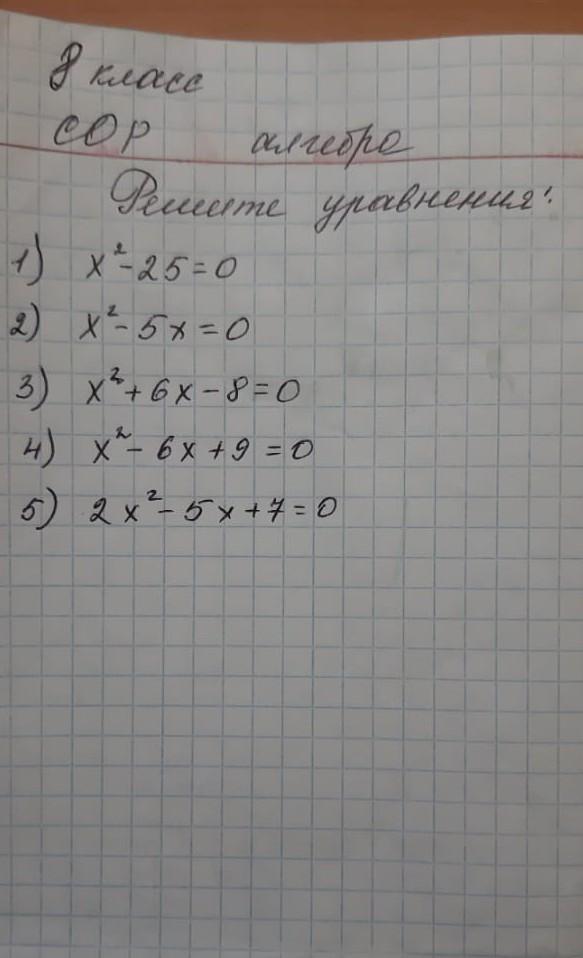 8 класс
СОР алгебра
Решите уравнения:
1) x²-25=0
2) x²-5x=0
3) x²+6x-8=0
4) x²-6x+9=0
5) 2x²-5x+7=0